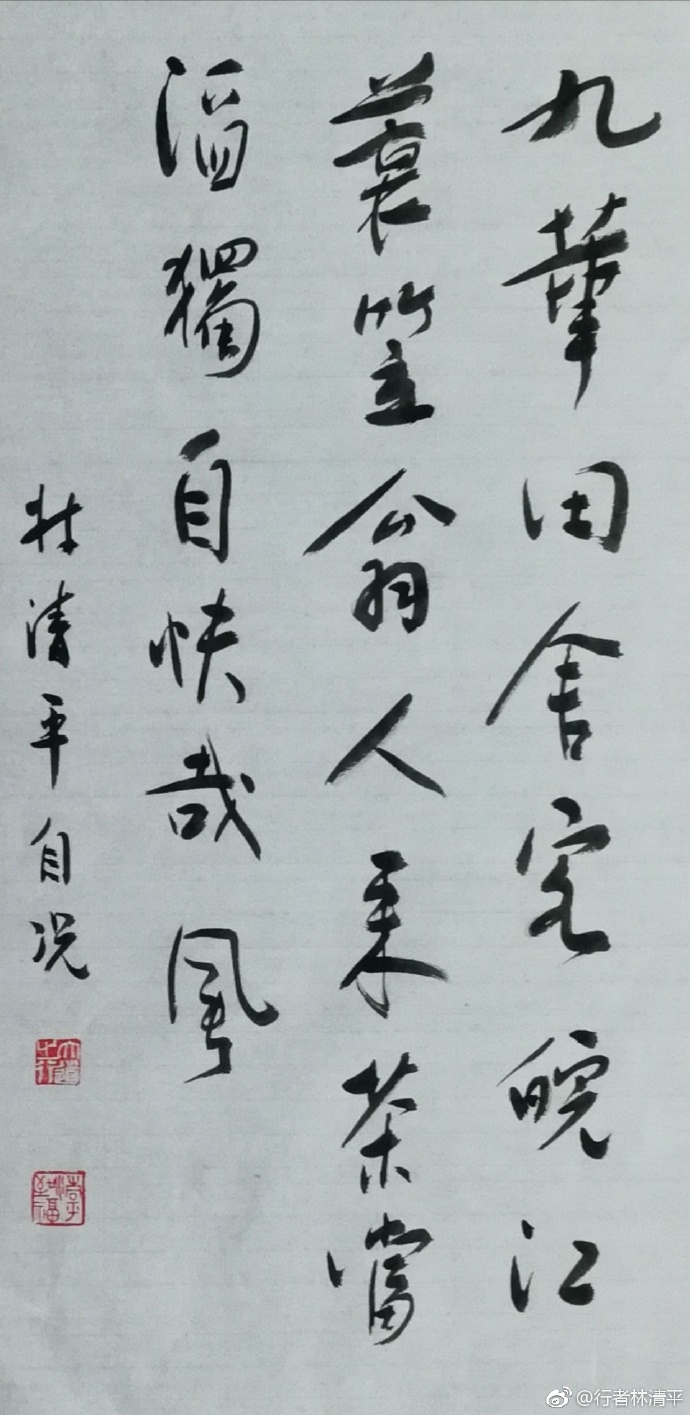 九華田舍客皖江
蓑笠翁人来茶當
酒獨自快哉風
林清平自况
@行者林清平